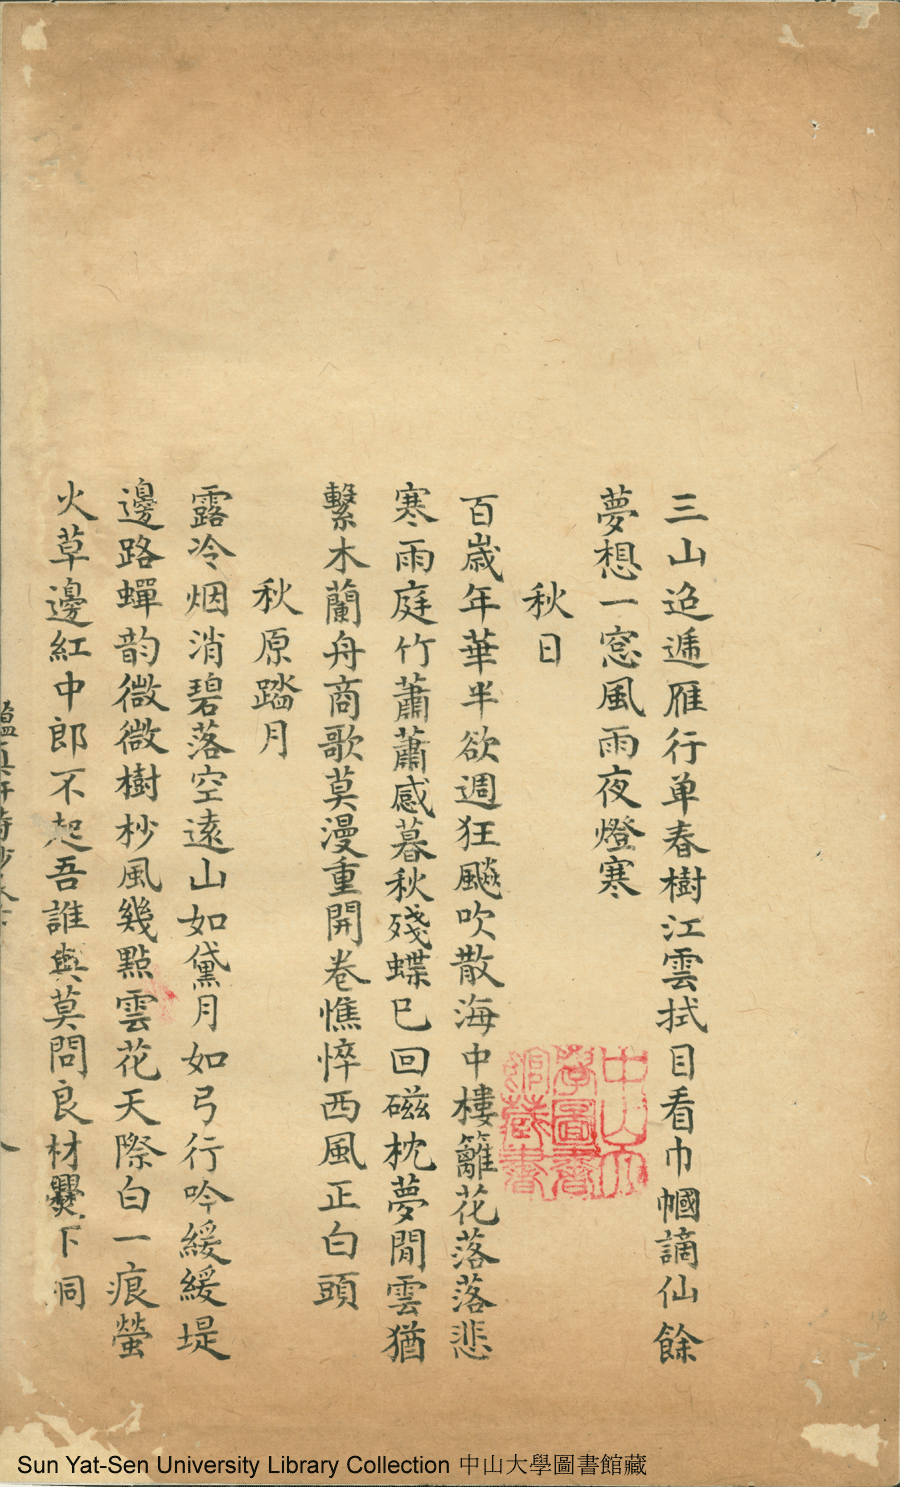 三山迢遞雁行单春樹江雲拭目看巾幗謫仙餘
夢想一窓風雨夜燈寒
秋日
百嵗年華半欲週狂飈吹散海中樓籬花落落悲
寒雨庭竹蕭蕭感暮秋殘蝶已回磁枕夢閒雲猶
繫木蘭舟商歌莫漫重開卷憔悴西風正白頭
秋原踏月
露冷烟消碧落空遠山如黛月如弓行吟緩緩堤
邊路蟬韵微微樹杪風幾點雲花天際白一痕螢
火草邊紅中郎不起吾誰與莫問良材爨下洞
中山大學圖書館藏書
Sun Yat-Sen University Library Collection 中山大學圖書館藏